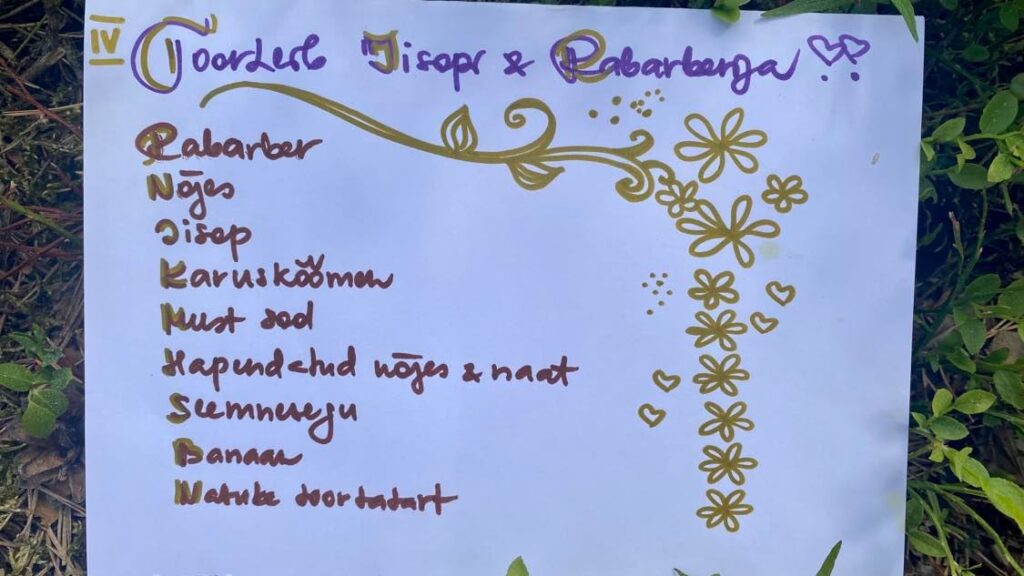 IV Toorleib Iisopi & Rabarberga
Rabarber
Nõges
Iisop
Karusköömen
Must sool
Hapendatud nõges & naat
Seemnesegu
Banaan
Natuke toortatart